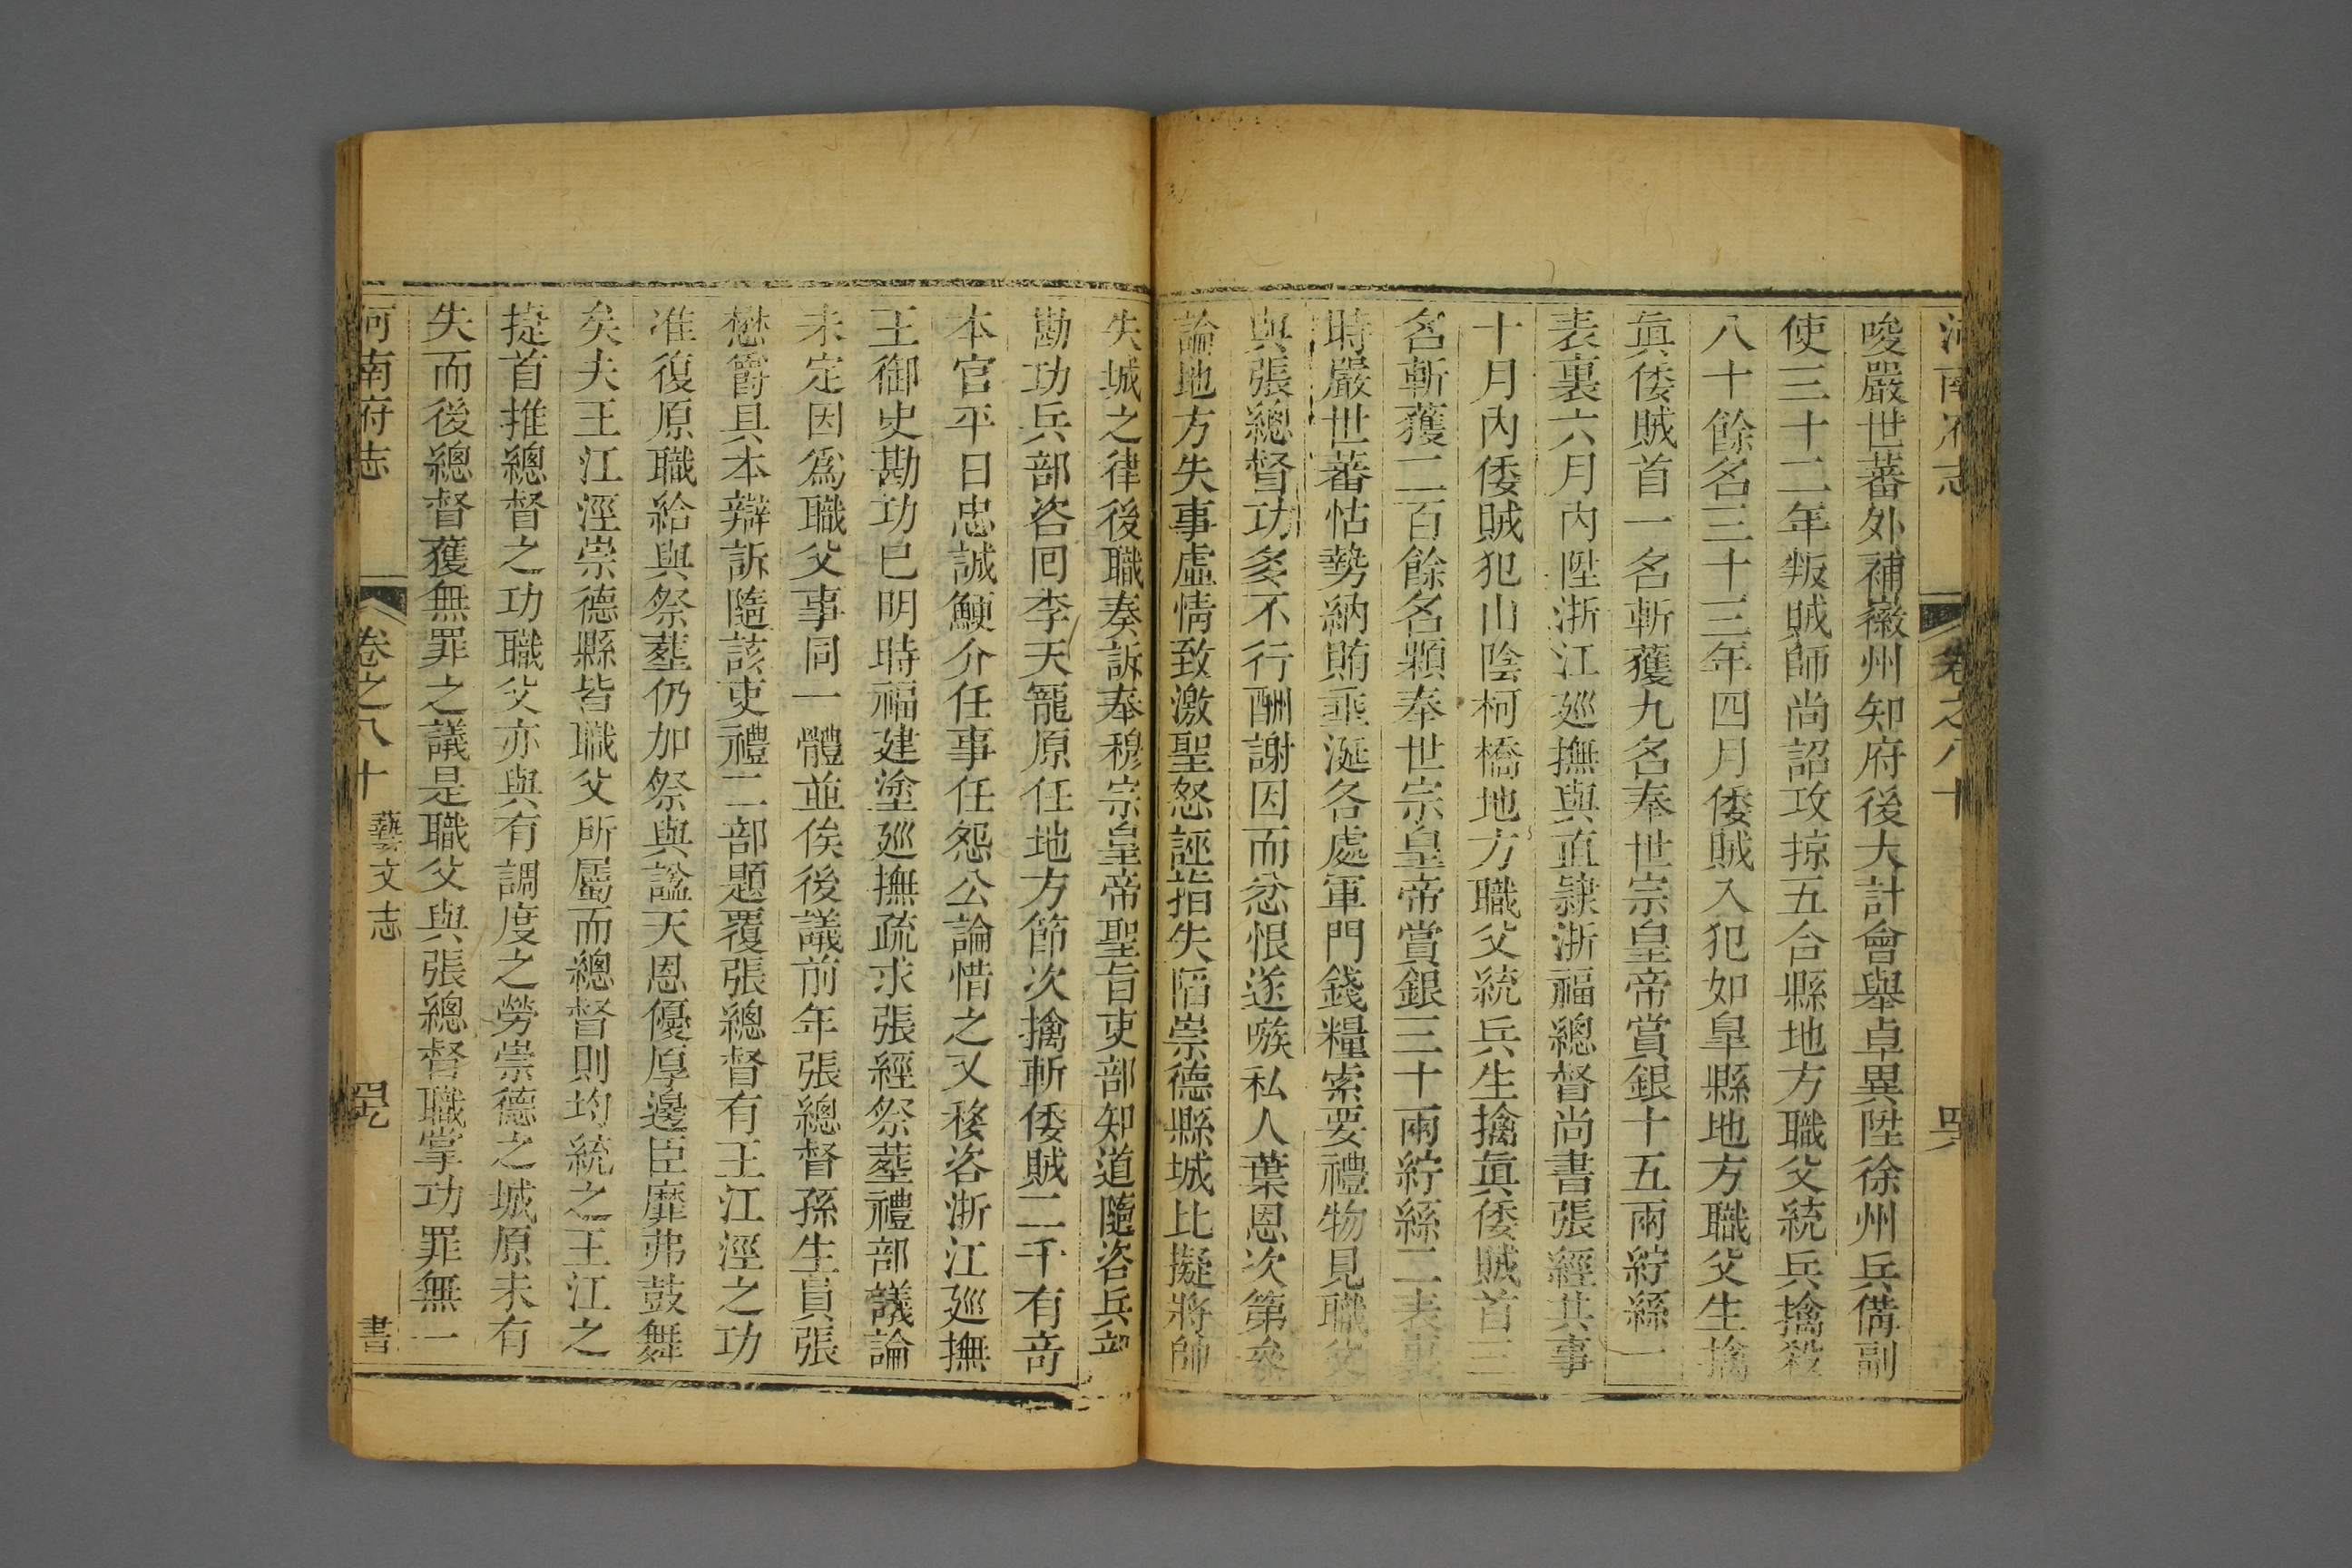 河南府志 卷之八十
唆嚴世蕃外補徽州知府後大計會舉卓異陞徐州兵備副
使三十二年叛賊師尚詔攻掠五合縣地方職父統兵擒殺
八十餘名三十三年四月倭賊入犯如臯縣地方職父生擒
眞倭賊首一名斬獲九名奉世宗皇帝賞銀十五兩紵絲一
表裏六月內陞浙江廵撫與直隸浙福總督尚書張經其事
十月內倭賊犯山陰柯橋地方職父統兵生擒眞倭賊首三
名斬獲二百餘名顆奉世宗皇帝賞銀三十兩紵絲二表裏
時嚴世蕃怙勢納賄垂涎各處軍門錢糧索要禮物見職父
與張總督功多不行酬謝因而忿恨遂嗾私人葉恩次第叅
論地方失事虛情致激聖怒誣指失陷崇德縣城比擬將帥
失城之律後職奏訴奉穆宗皇帝聖旨吏部知道隨咨兵部
勘功兵部咨囘李天寵原任地方節次擒斬倭賊二千有奇
本官平日忠誠鯁介任事任怨公論惜之又移咨浙江廵撫
王御史勘功已明時福建塗廵撫疏求張經祭塟禮部議論
未定因爲職父事同一體並俟後議前年張總督孫生員張
懋爵具本辯訴隨該吏禮二部題覆張總督有王江涇之功
准復原職給與祭塟仍加祭與諡天恩優厚邊臣靡弗鼓舞
矣夫王江涇崇德縣皆職父所屬而總督則均統之王江之
捷首推總督之功職父亦與有調度之勞崇德之城原未有
失而後總督獲無罪之議是職父與張總督職掌功罪無一
河南府志 卷之八十 藝文志 書